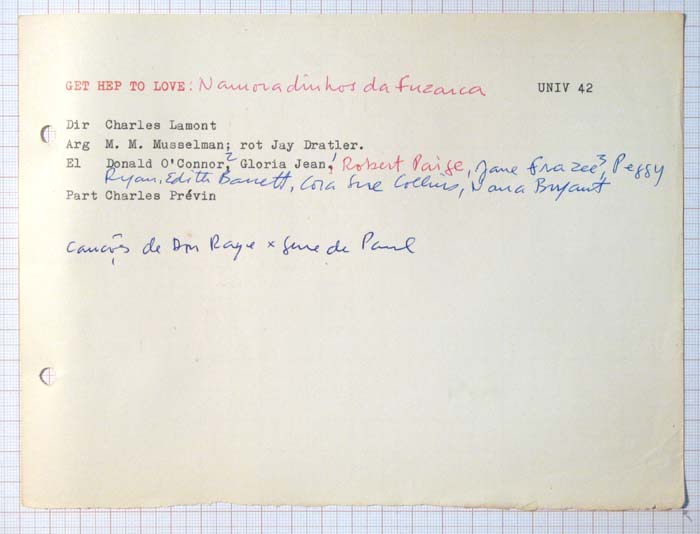 GET HEP TO LOVE: Namoradinhos da fuzarca UNIV 42
Dir Charles Lamont
Arg M. M. Musselman; rot Jay Dratler.
El Donald O'Connor,² Gloria Jean,¹ Robert Paige, Jane Frazee³, Peggy
Ryan, Edith Barrett, Cora Sue Collins, Nana Bryant
Part Charles Prévin
canções de Don Raye x Gene de Paul